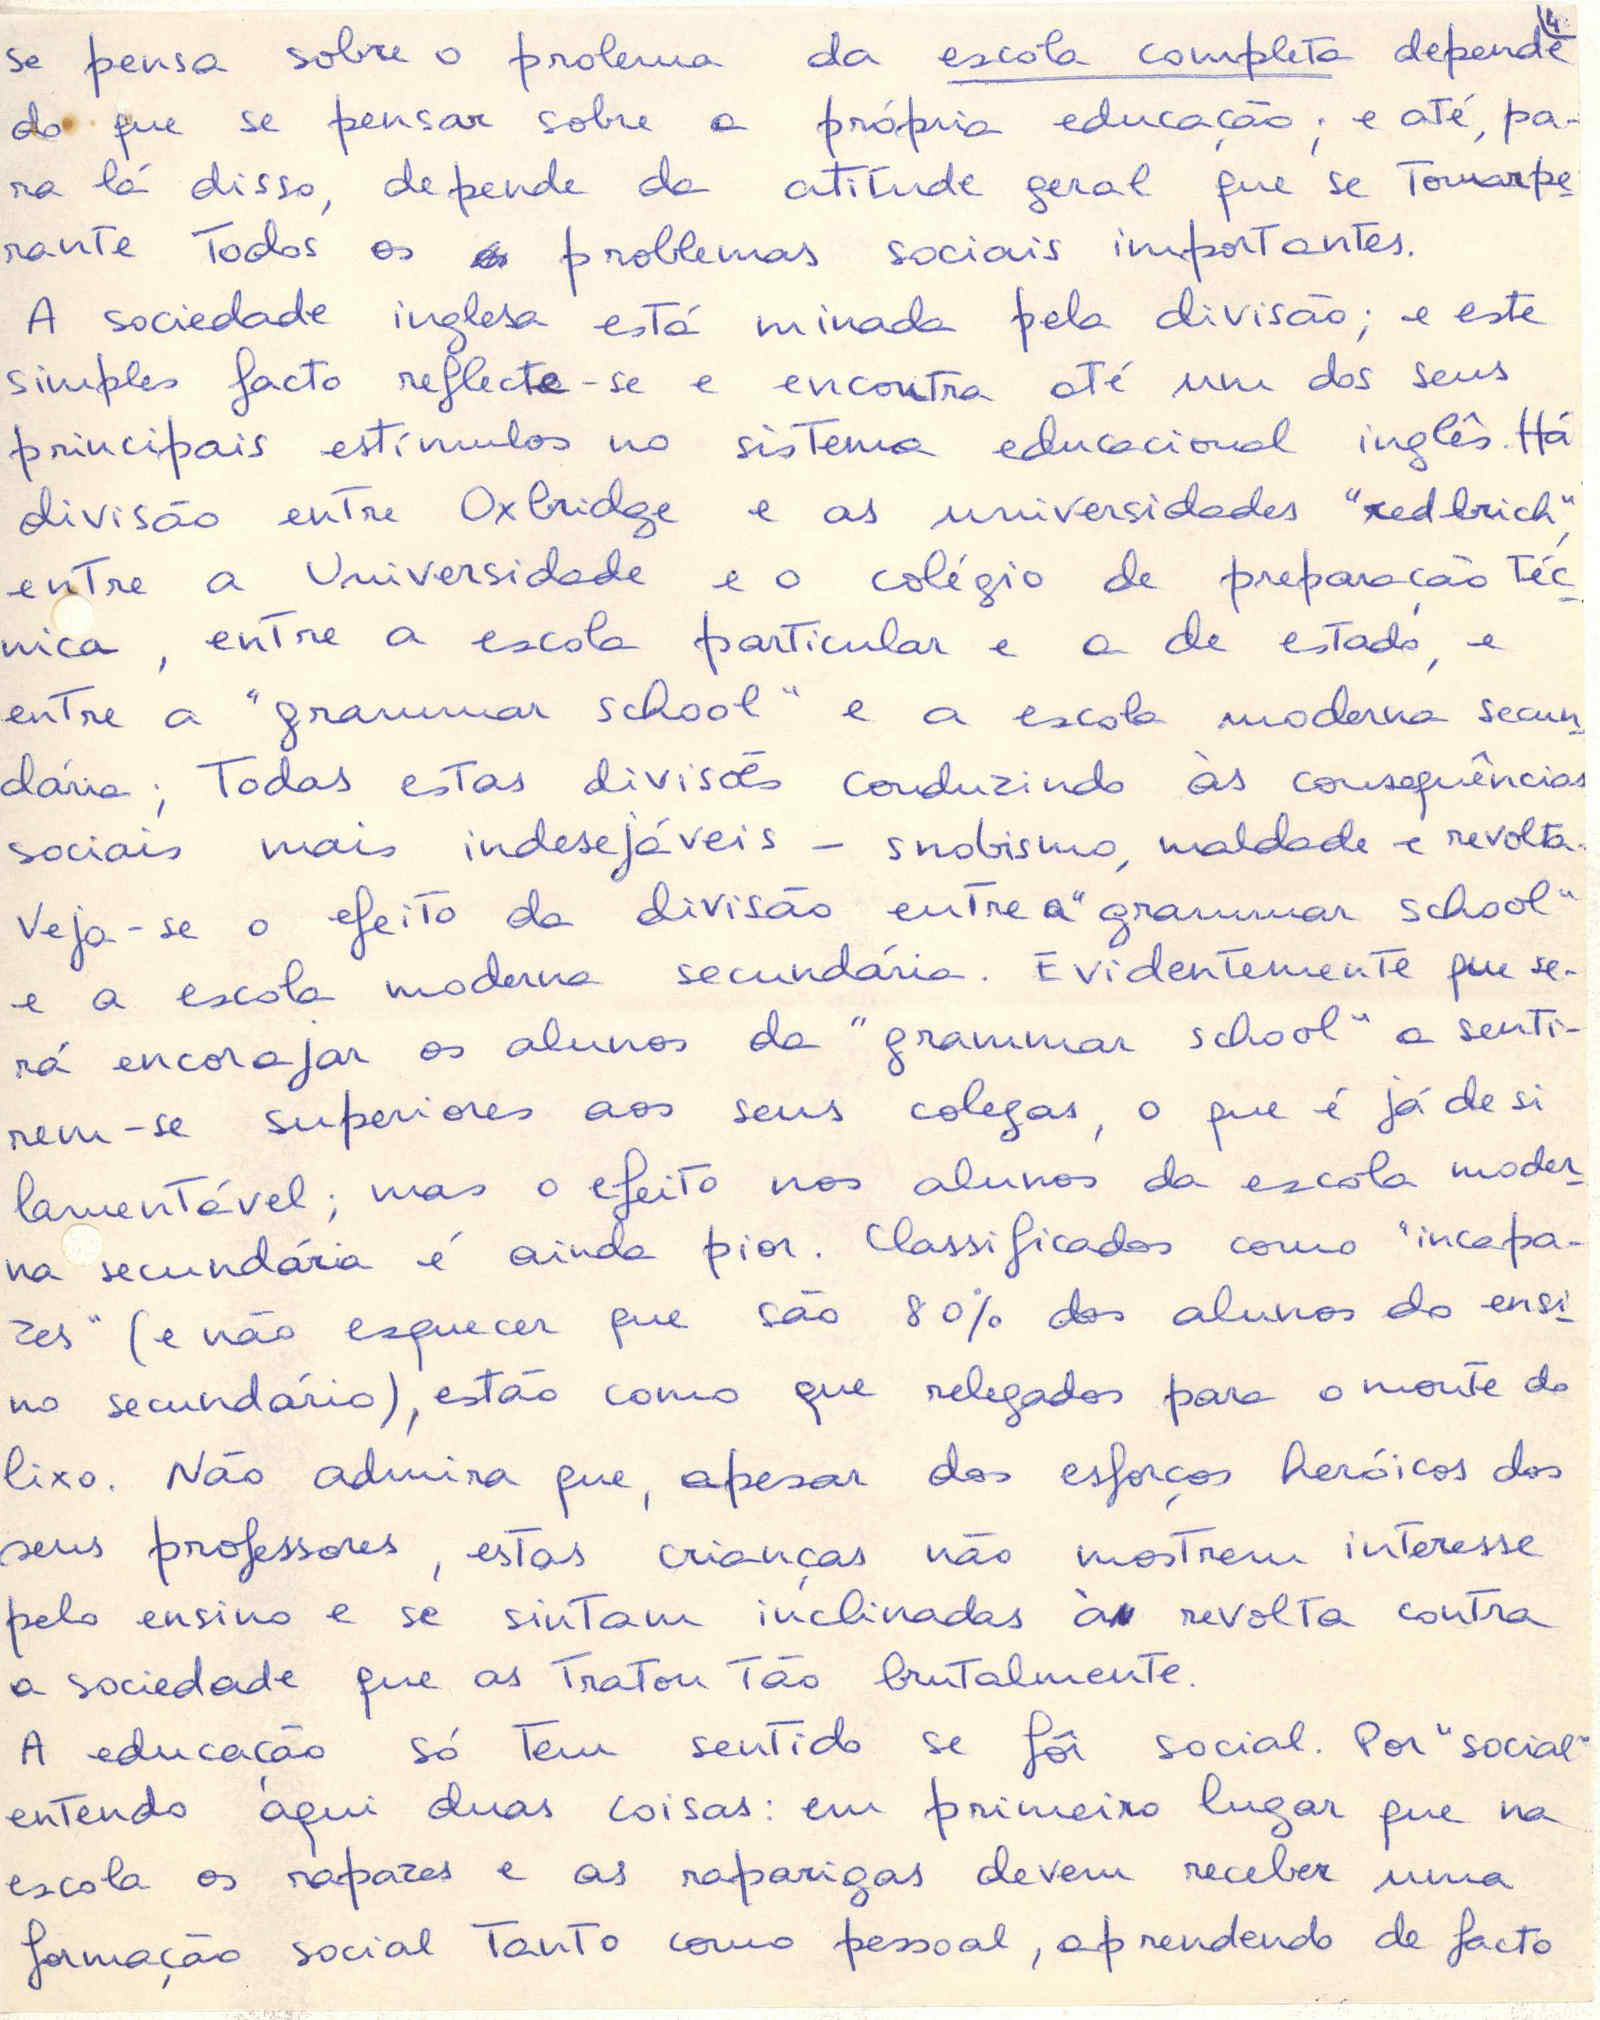 4
se pensa sobre o prolema da escola completa depende
do que se pensar sobre a própria educação; e até, pa-
ra lá disso, depende da atitude geral que se tomar pe-
rante todos os problemas sociais importantes.
A sociedade inglesa está minada pela divisão; e este
simples facto reflecte-se e encontra até um dos seus
principais estímulos no sistema educacional inglês. Há
divisão entre Oxbridge e as universidades "redbrich",
entre a Universidade e o colégio de preparação téc-
nica, entre a escola particular e a de estado, e
entre a "grammar school" e a escola moderna secun-
dária; todas estas divisões conduzindo às consequências
sociais mais indesejáveis - snobismo, maldade e revolta.
Veja-se o efeito da divisão entre a "grammar school"
e a escola moderna secundária. Evidentemente que se-
rá encorajar os alunos da "grammar school" a senti-
rem-se superiores aos seus colegas, o que é já de si
lamentável; mas o efeito nos alunos da escola moder-
na secundária é ainda pior. Classificados como "incapa-
zes" (e não esquecer que são 80% dos alunos do ensi-
no secundário), estão como que relegados para o monte do
lixo. Não admira que, apesar dos esforços heróicos dos
seus professores, estas crianças não mostrem interesse
pelo ensino e se sintam inclinadas à revolta contra
a sociedade que as tratou tão brutalmente.
A educação só tem sentido se fôr social. Por "social"
entendo aqui duas coisas: em primeiro lugar que na
escola os rapazes e as raparigas devem receber uma
formação social tanto como pessoal, aprendendo de facto